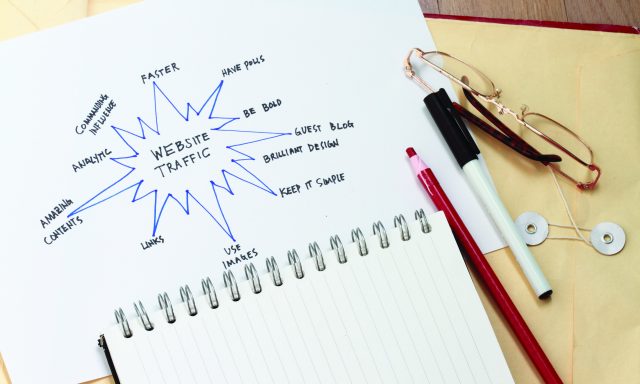 FASTER
HAVE POLLS
COMMANDING
INFLUENCE
BE BOLD
WEBSITE
TRAFFIC
GUEST BLOG
ANALYTIC
BRILLIANT DESIGN
KEEP IT SIMPLE
AMAZING
CONTENTS
LINKS
USE
IMAGES